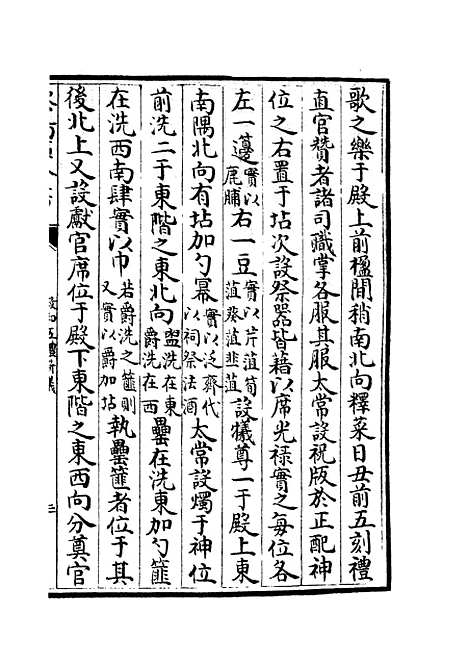 歌之樂于殿上前楹間稍南北向釋菜日丑前五刻禮
直官贊者諸司職掌各服其服太常設祝版於正配神
位之右置于坫次設祭器皆藉以席光祿實之每位各
左一籩實以鹿脯右一豆實以芹菹筍菹葵菹韭菹設犧尊一于殿上東
南隅北向有坫加勺冪實以泛齊代以祠祭法酒太常設燭于神位
前洗二于東階之東北向盥洗在東爵洗在西罍在洗東加勺篚
在洗西南肆實以巾若爵洗之篚則又實以爵加坫執罍篚者位于其
後北上又設獻官席位于殿下東階之東西向分奠官
政和五禮新儀
三